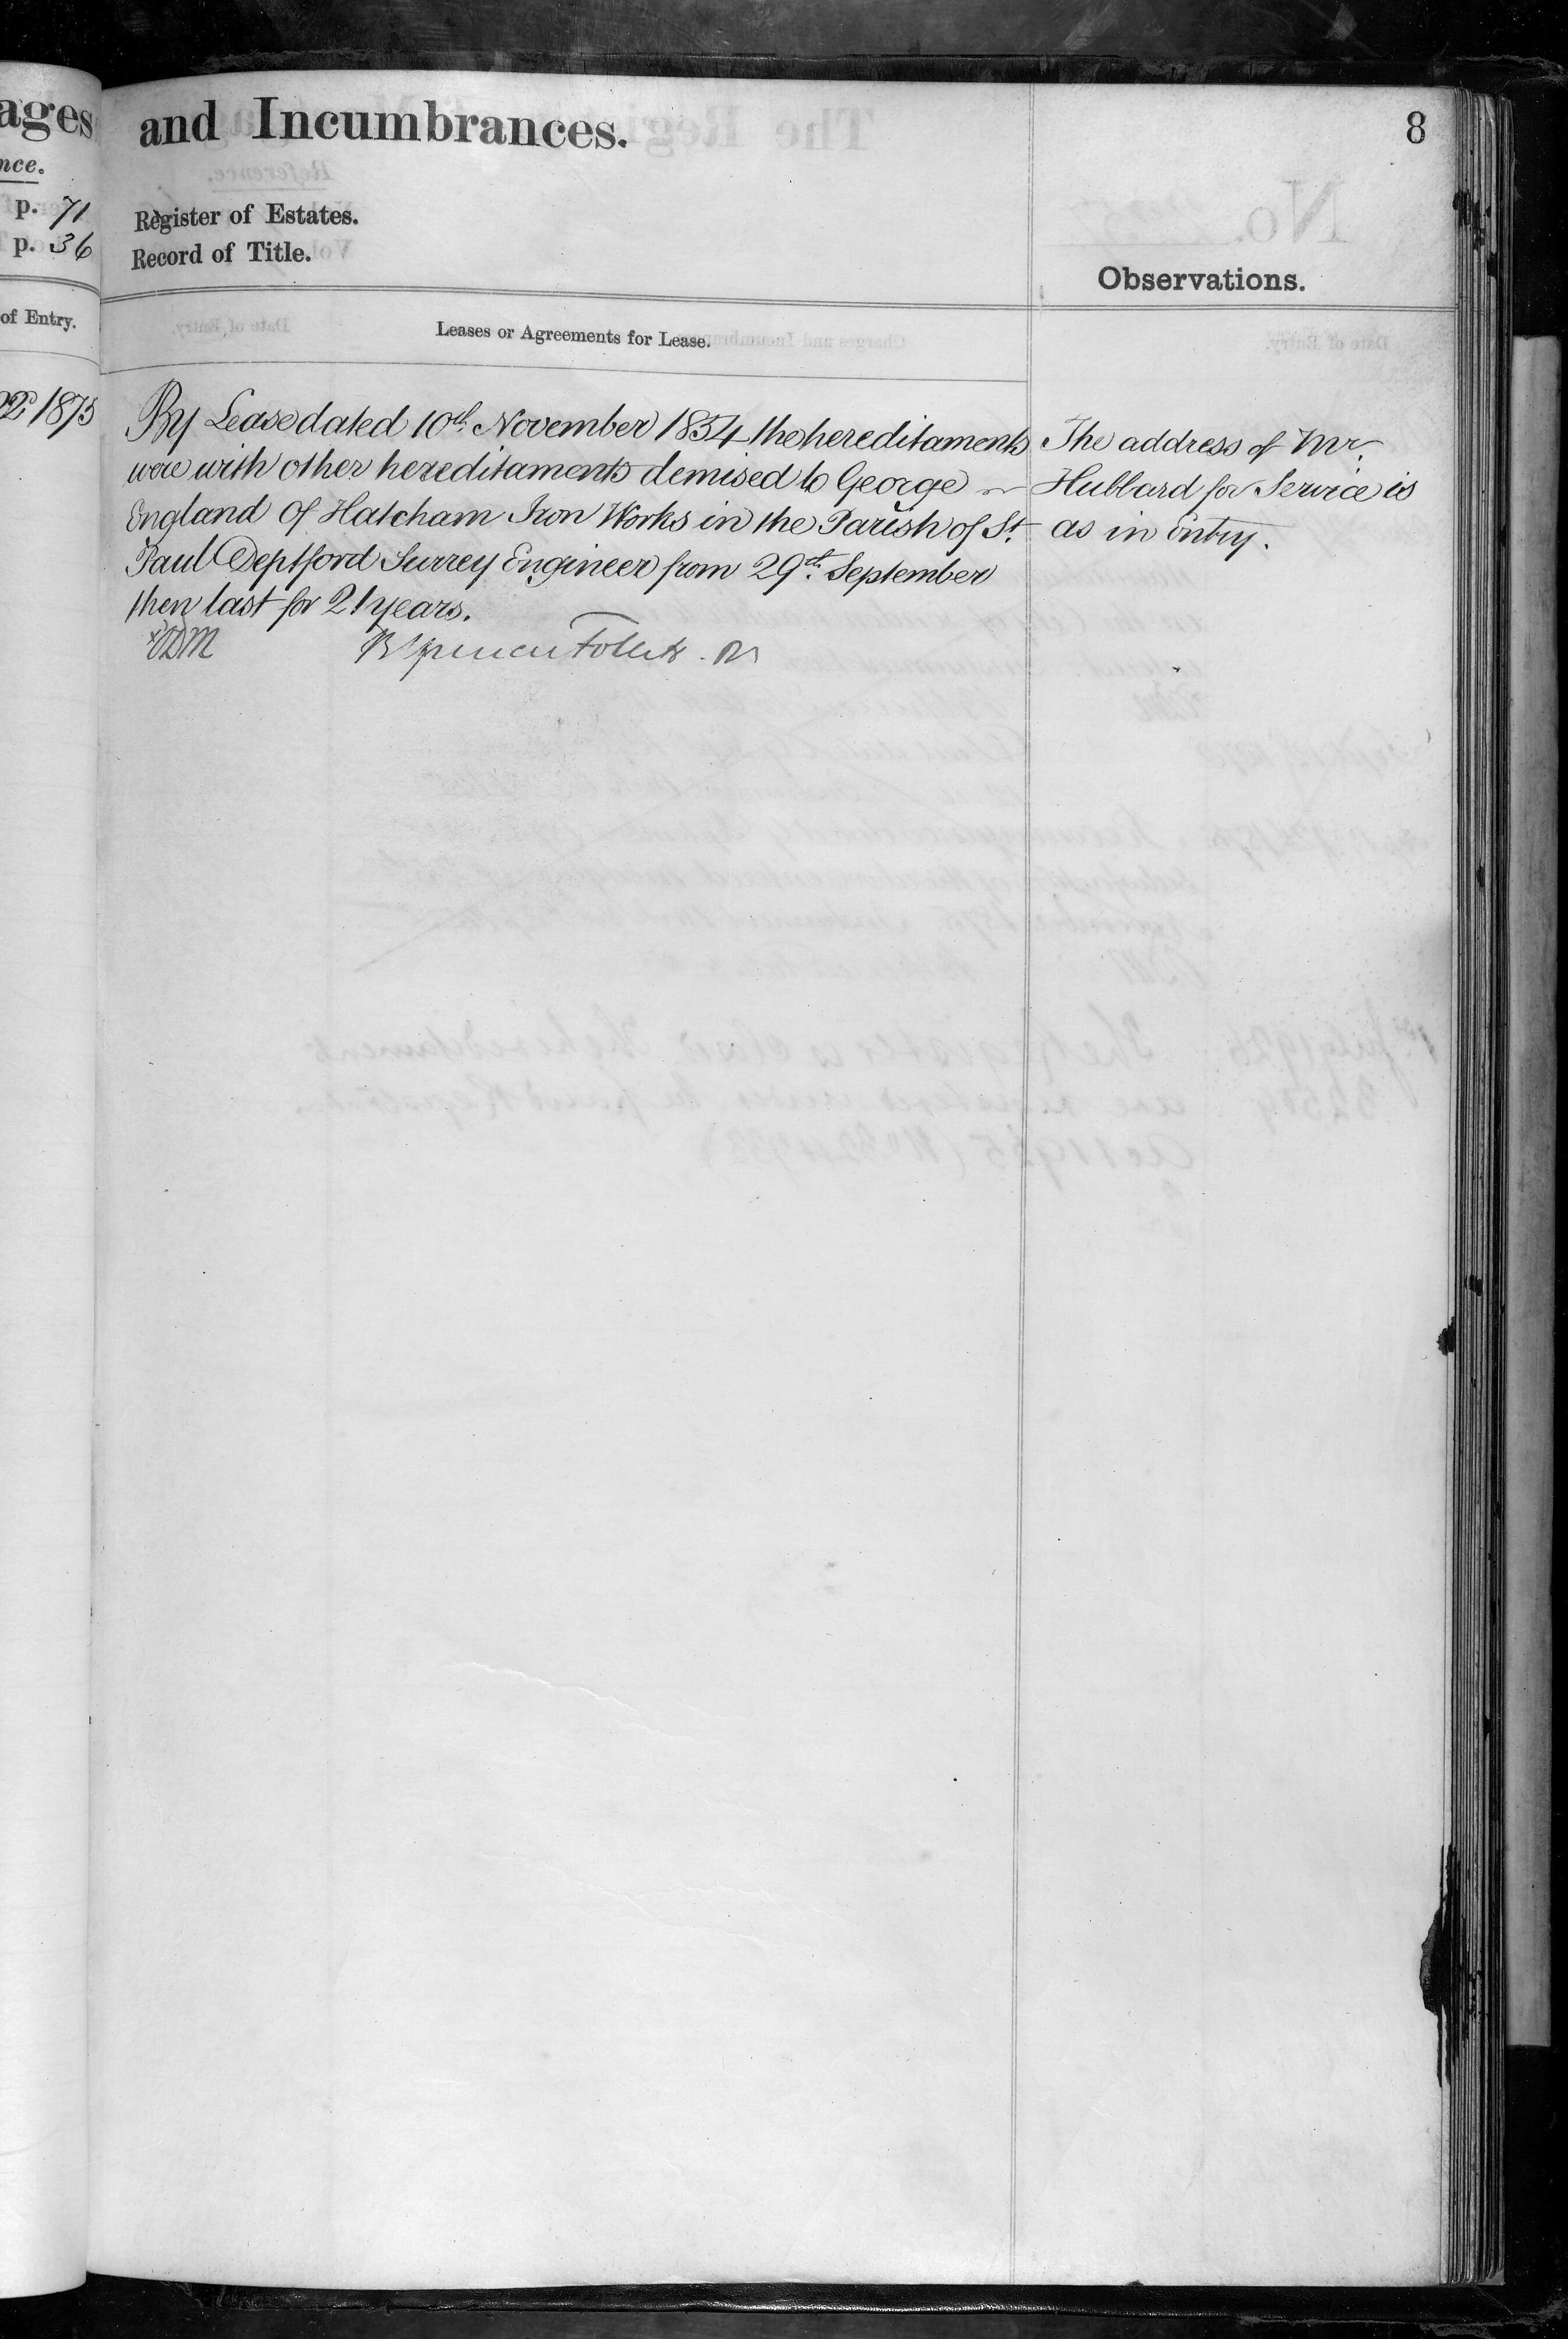 ages
nce.
p. 71
p. 36
of Entry.
1875
and Incumbrances.
8
Register of Estates.
Record of Title.
Observations.
Leases or Agreements for Lease.
By Lease dated 10th November 1854 the hereditaments
were with other hereditaments demised to George
England of Hatcham Iron Works in the Parish of St.
Paul Deptford Surrey Engineer from 29th September
then last for 21 years.
B Spencer Follett
The address of Mr.
Hubbard for Service is
as in Entry.